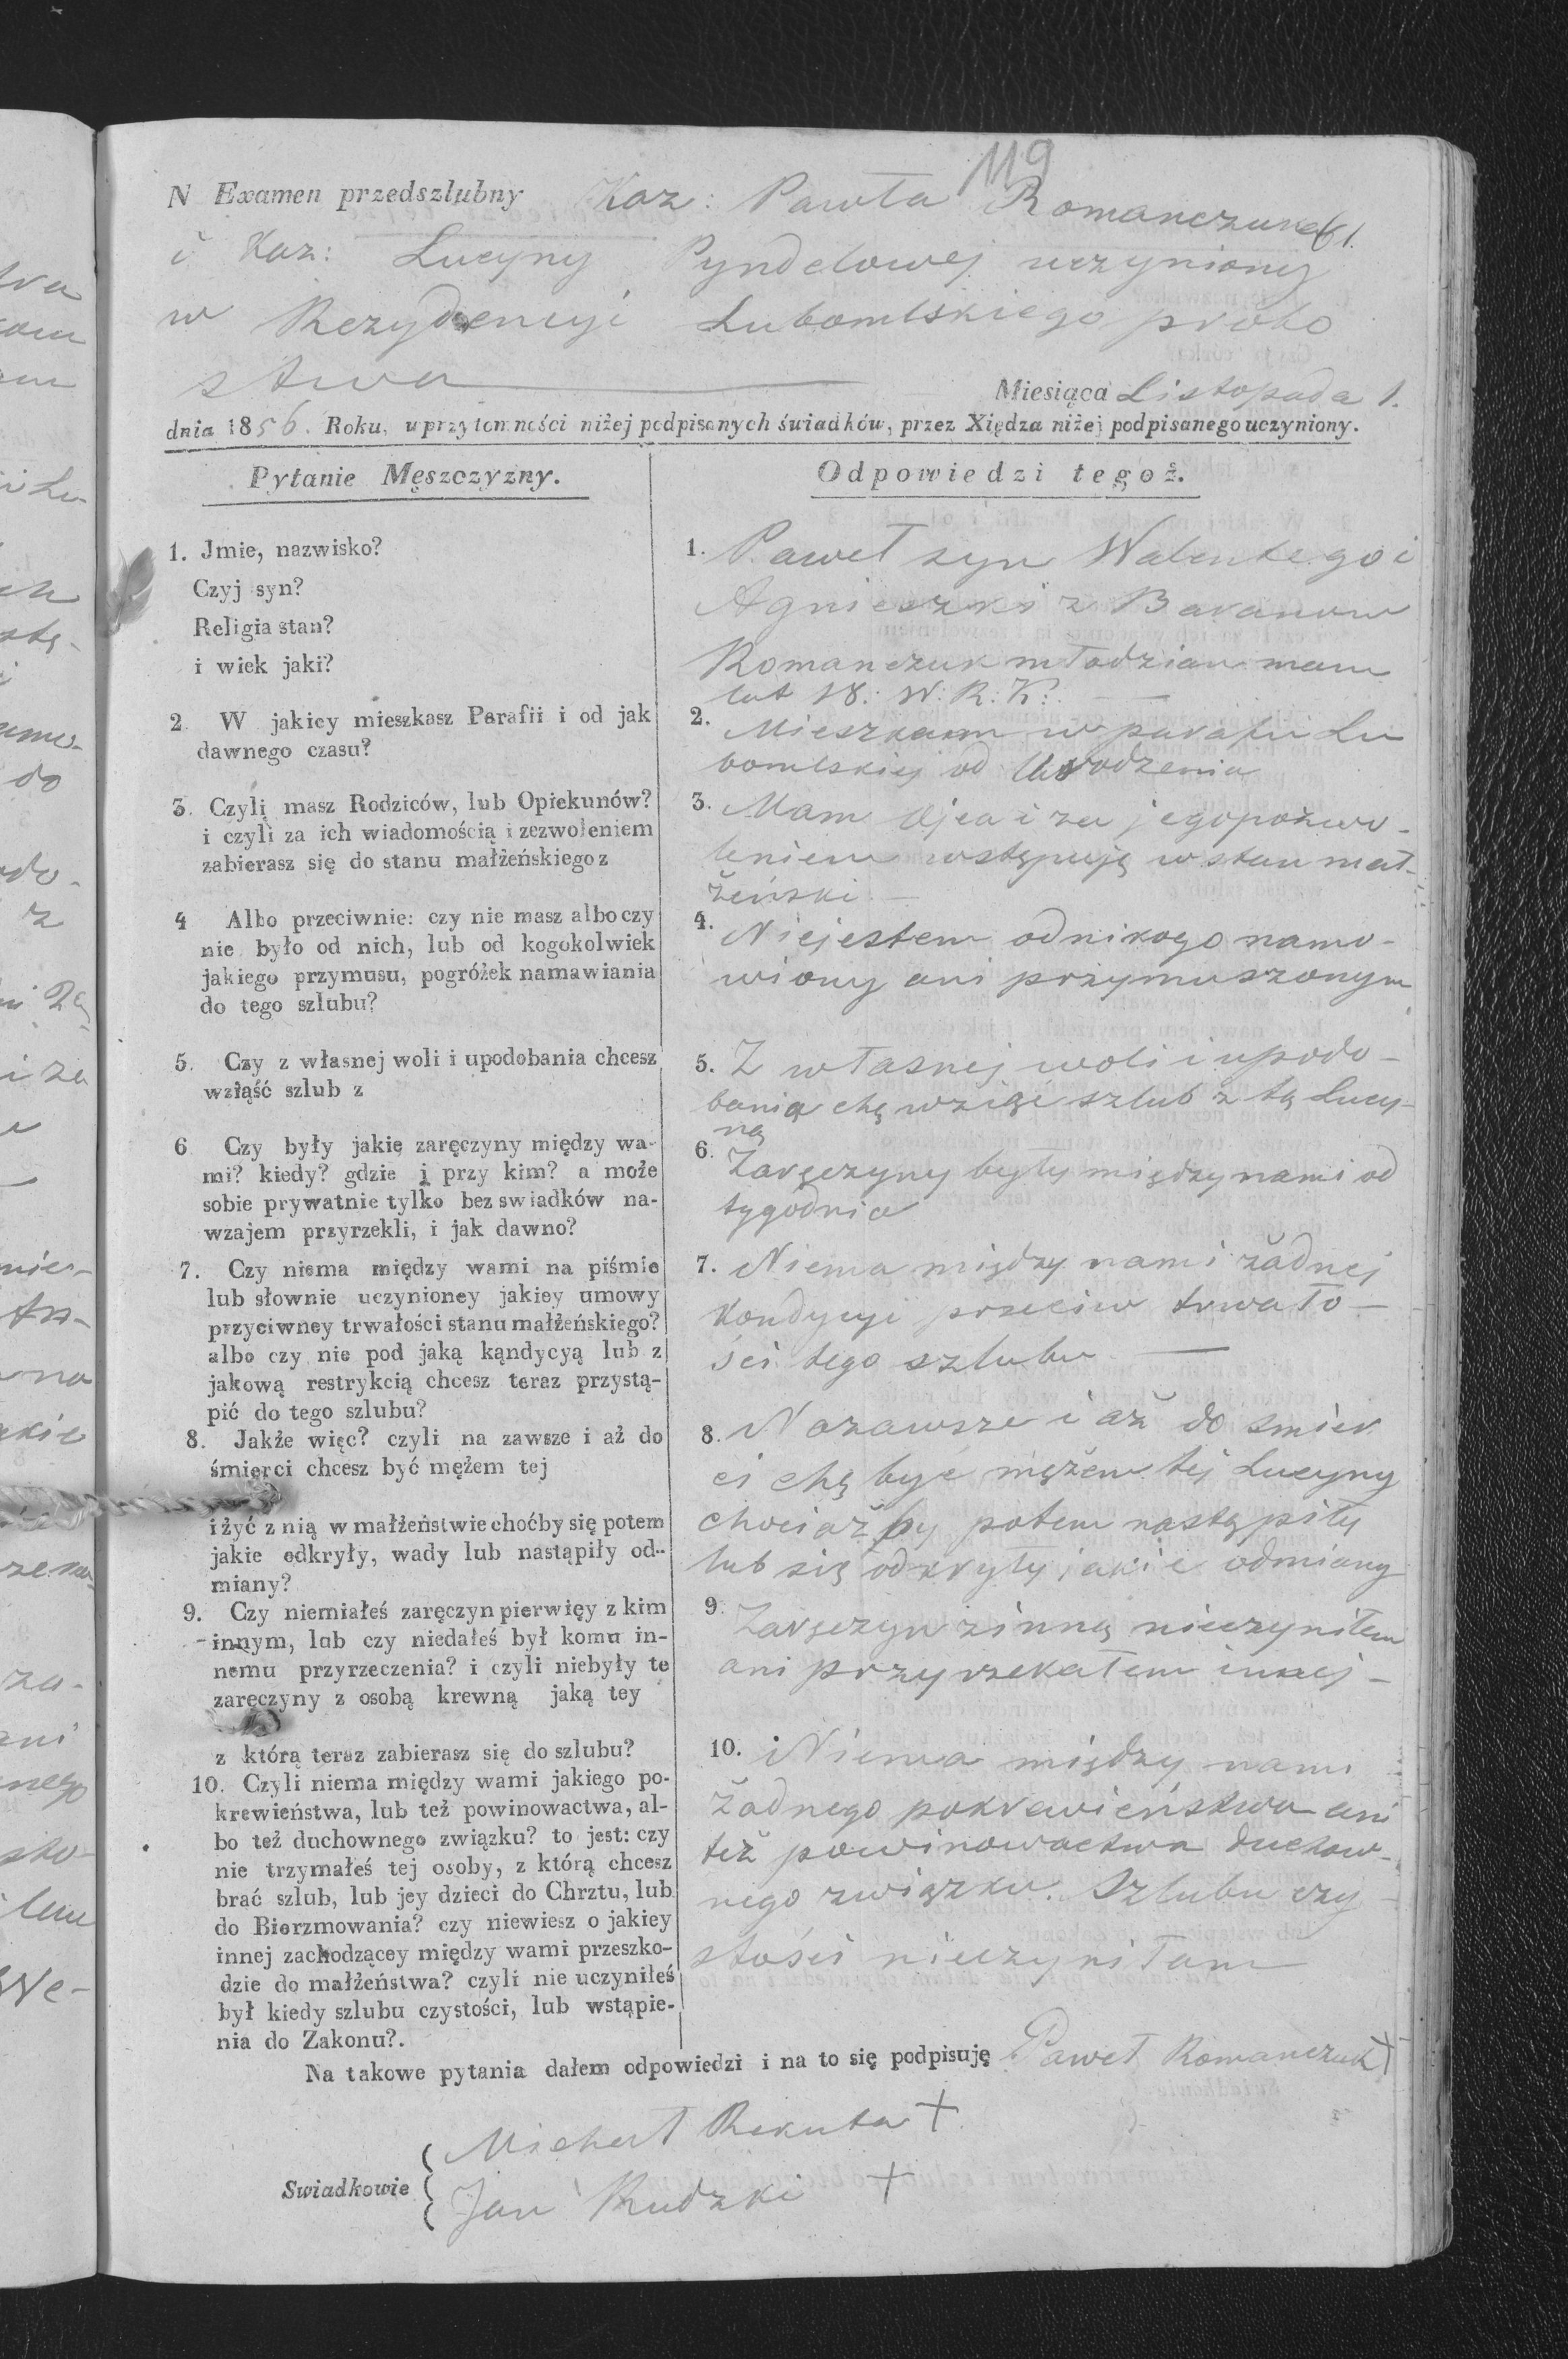 119
N Examen przedszlubny Kaz: Pawła Romanczuka
61.
i Kaz: Lucyny Pyndelowej uczyniony
w Rezydencyi Lubomlskiego probo
stwa
Miesiąca Listopada 1.
dnia 1856. Roku, w przytomności niżej podpisanych świadków, przez Xiędza niżej podpisanego uczyniony.
Pytanie Męszczyzny.
1. Jmie, nazwisko?
Czyj syn?
Religia stan?
i wiek jaki?
2 W jakiey mieszkasz Parafii i od jak
dawnego czasu?
3. Czyli masz Rodziców, lub Opiekunów?
i czyli za ich wiadomością i zezwoleniem
zabierasz się do stanu małżeńskiego z
4 Albo przeciwnie: czy nie masz albo czy
nie było od nich, lub od kogokolwiek
jakiego przymusu, pogróżek namawiania
do tego szlubu?
5. Czy z własnej woli i upodobania chcesz
wziąść szlub z
6 Czy były jakie zaręczyny między wa-
mi? kiedy? gdzie i przy kim? a może
sobie prywatnie tylko bez swiadków na-
wzajem przyrzekli, i jak dawno?
7. Czy niema między wami na piśmie
lub słownie uczynioney jakiey umowy
przyciwney trwałości stanu małżeńskiego?
albo czy nie pod jaką kąndycyą lub z
jakową restrykcią chcesz teraz przystą-
pić do tego szlubu?
8. Jakże więc? czyli na zawsze i aż do
śmierci chcesz być mężem tej
i żyć z nią w małżeństwie choćby się potem
jakie odkryły, wady lub nastąpiły od-
miany?
9. Czy niemiałeś zaręczyn pierwięy z kim
innym, lub czy niedałeś był komu in-
nemu przyrzeczenia? i czyli niebyły te
zaręczyny z osobą krewną jaką tey
z którą teraz zabierasz się do szlubu?
10. Czyli niema między wami jakiego po-
krewieństwa, lub też powinowactwa, al-
bo też duchownego związku? to jest: czy
nie trzymałeś tej osoby, z którą chcesz
brać szlub, lub jey dzieci do Chrztu, lub
do Bierzmowania? czy niewiesz o jakiey
innej zachodzącey między wami przeszko-
dzie do małżeństwa? czyli nie uczyniłeś
był kiedy szlubu czystości, lub wstąpie-
nia do Zakonu?.
Odpowiedzi tegoż.
1. Paweł syn Walentego i
Agnieszki z Baranow
Romanczuk młodzian mam
lat 18: W: R: K:
2. Mieszkam w parafii Lu
bomlskiej od Urodzenia
3. Mam Ojca i za jego pozwo-
leniem wstępuję w stan mał-
żeński
4. Niejestem od nikogo namo-
wiony ani przymuszonym
5. Z własnej woli i upodo-
bania chę wziąść szlub z tą Lucy-
ną
6. Zaręczyny były między nami od
tygodnia
7. Niema między nami żadnej
Kondycyi przeciw trwało-
ści tego szlubu
8. Nazawsze i aż do smier
ci chę byc mężem tej Lucyny
chociażby potem nastąpiły
lub się odkryły jakie odmiany
9. Zaręczyn z inną nieczyniłem
ani przyrzekałem innej -
10. Niema między nami
żadnego pokrewieństwa ani
też powinowactwa duchow-
nego związku. Szlubu czy
stości nieczyniłam
Na takowe pytania dałem odpowiedzi i na to się podpisuję Paweł Romanczuk +
Swiadkowie
Michał Rekuta +
Jan Rudzki +